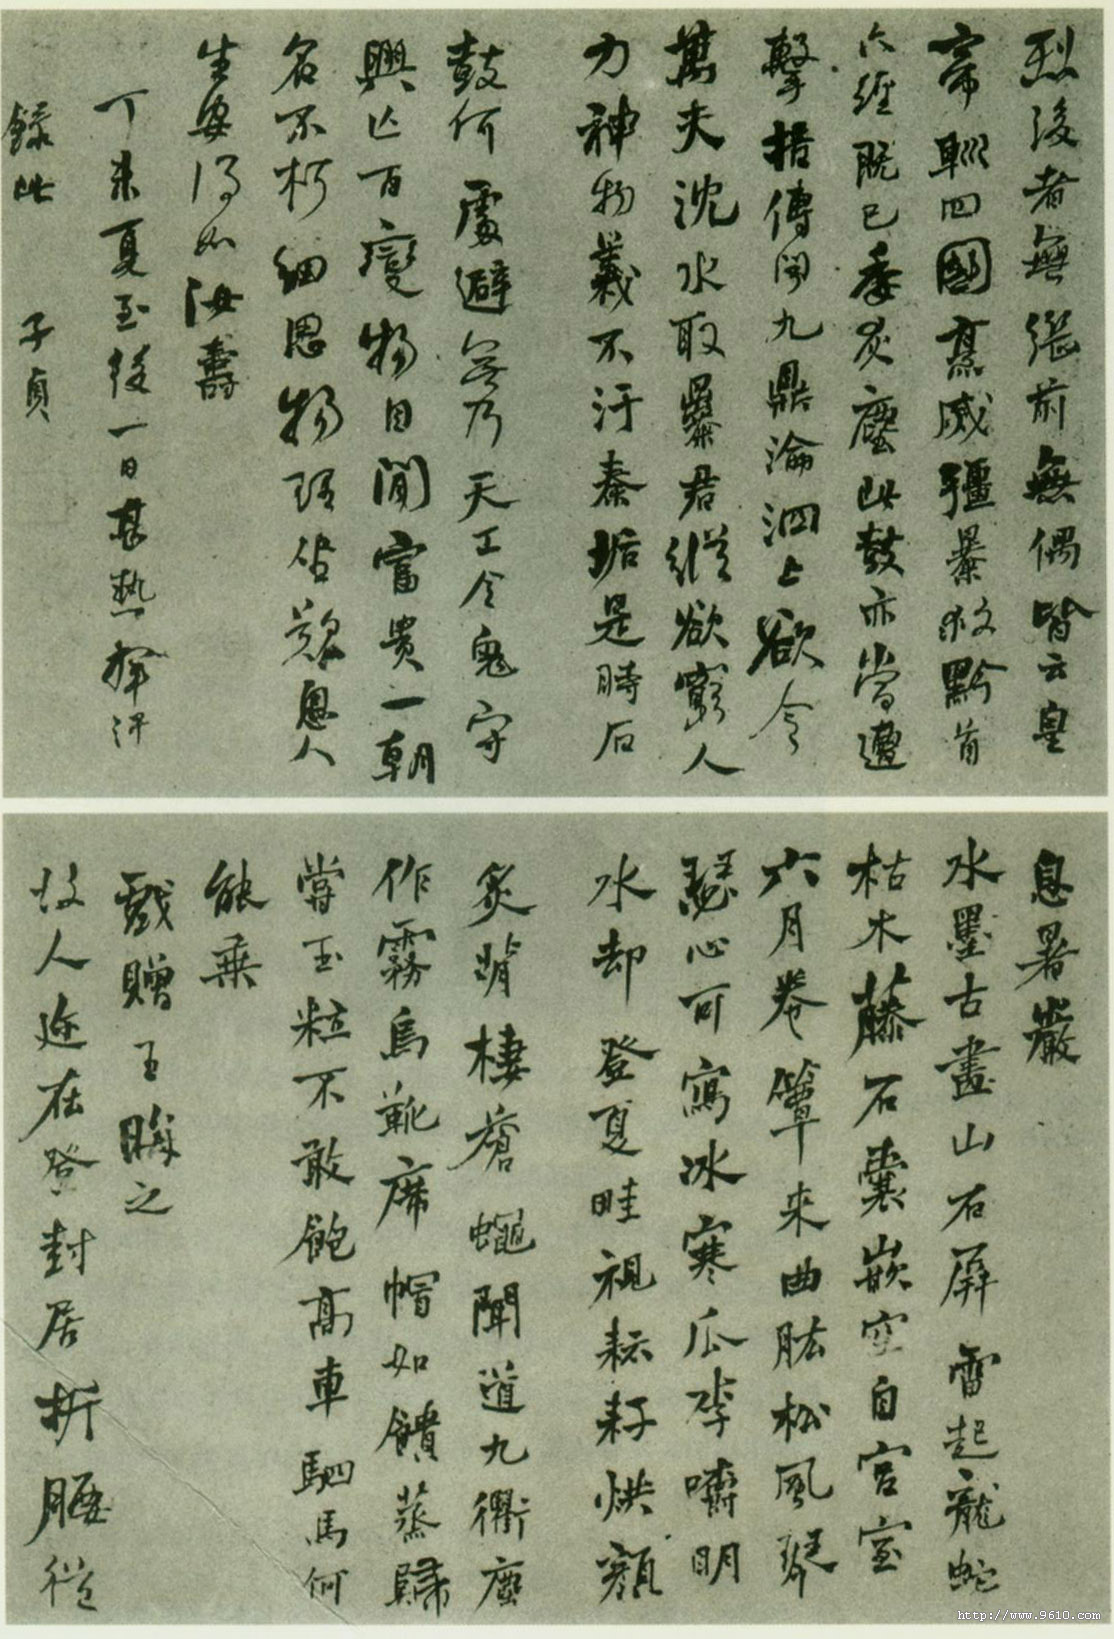 烈後者無繼前無偶皆云皇
帝聊四國烹滅彊暴救黔首
六經既已委灰塵此鼓亦當遭
擊掊傳聞九鼎淪泗上欲令
萬夫沈水取暴君縱欲窮人
力神物義不汙秦垢是時石
鼓何處避無乃天工令鬼守
興亡百變物自閒富貴一朝
名不朽細思物理坐歎息人
生安得如汝壽
丁未夏至後一日甚熱揮汗
錄此 子貞
息暑巖
水墨古畫山石屏雷起龍蛇
枯木藤石囊嵌空自宮室
六月卷簟來曲肱松風琴
瑟心可寫冰寒瓜李嚼明
水却登夏畦視耘耔烘顏
炙背棲蒼蠅聞道九衢塵
作霧烏靴席帽如饋蒸歸
嘗玉粒不敢飽高車駟馬何
能乘
戲贈王晦之
故人適在登封居折腰從
http://www.9610.com